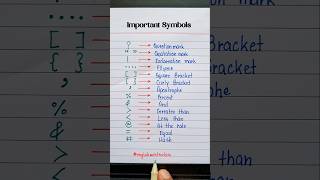 Important Symbols
? → Question mark
" " → Quotation mark
! → Exclamation mark
.... → Ellipsis
[ ] → Square Bracket
{ } → Curly Bracket
, → Apostrophe
% → Percent
& → And
> → Greater than
< → Less than
@ → At the rate
= → Equal
# → Hash